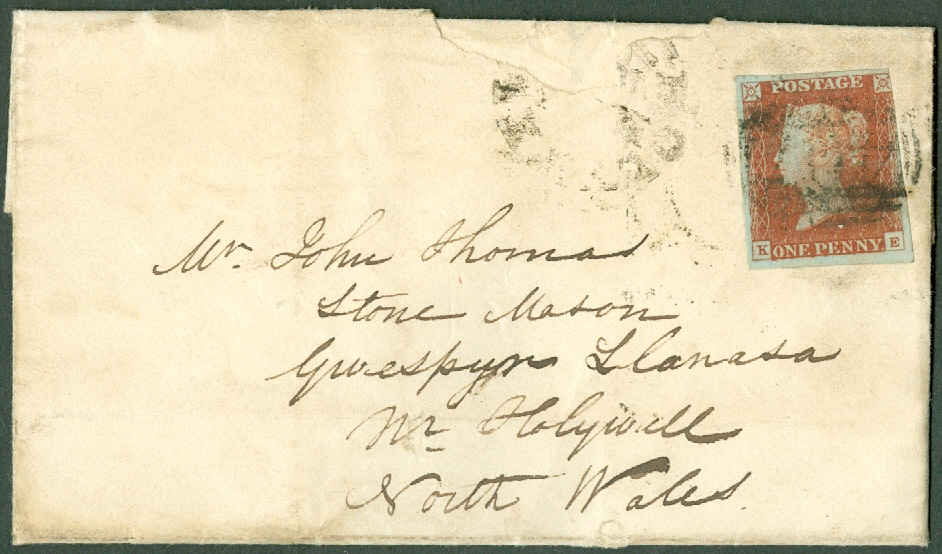 POSTAGE
K ONE PENNY. E
Mr. John Thomas
Stone Mason
Gwespyr Llanasa
Nr Holywell
North Wales